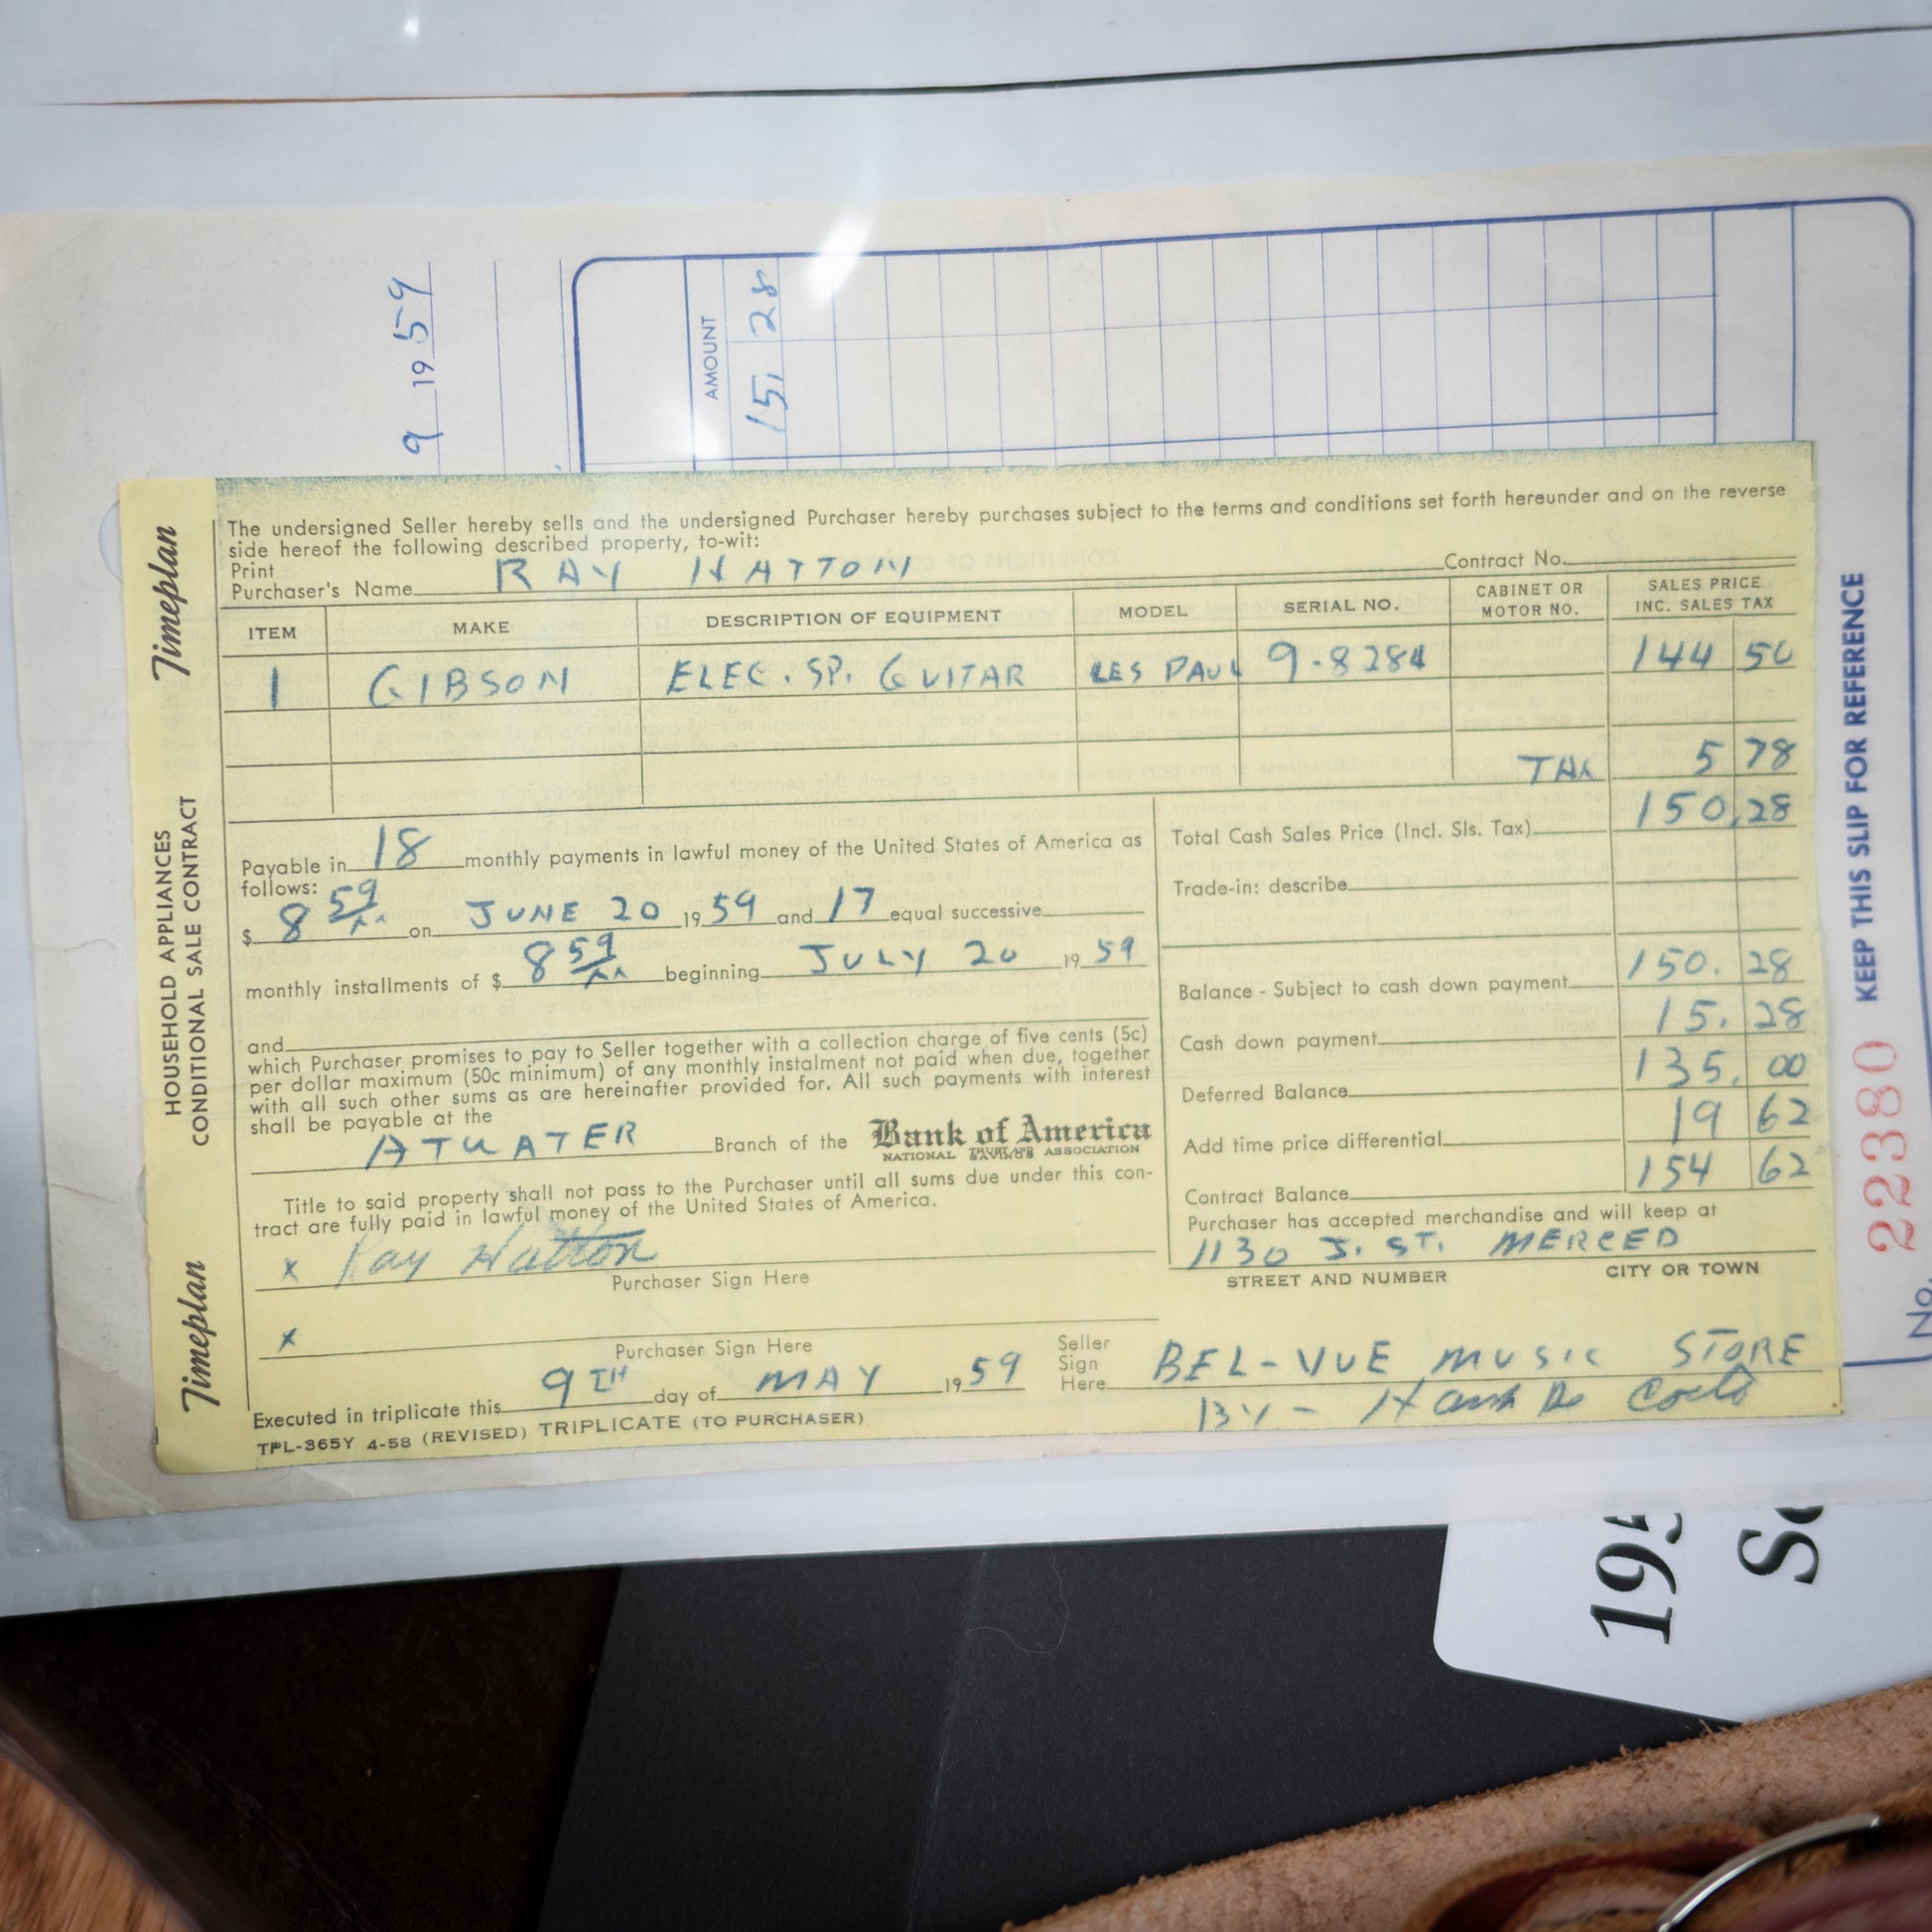 9 1959
AMOUNT
15 28
Timeplan
HOUSEHOLD APPLIANCES
CONDITIONAL SALE CONTRACT
Timeplan
The undersigned Seller hereby sells and the undersigned Purchaser hereby purchases subject to the terms and conditions set forth hereunder and on the reverse
side hereof the following described property, to-wit:
Print
Purchaser's Name RAY HATTON Contract No.
ITEM MAKE DESCRIPTION OF EQUIPMENT MODEL SERIAL NO. CABINET OR MOTOR NO. SALES PRICE INC. SALES TAX
1 GIBSON ELEC. SP. GUITAR LES PAUL 9-8284 144 50
TAX 5 78
Total Cash Sales Price (Incl. Sls. Tax) 150.28
Payable in 18 monthly payments in lawful money of the United States of America as
follows:
$ 8 59/xx on JUNE 20 1959 and 17 equal successive
monthly installments of $ 8 59/xx beginning JULY 20 1959
and
which Purchaser promises to pay to Seller together with a collection charge of five cents (5c)
per dollar maximum (50c minimum) of any monthly instalment not paid when due, together
with all such other sums as are hereinafter provided for. All such payments with interest
shall be payable at the
ATWATER Branch of the Bank of America
NATIONAL TRUST AND SAVINGS ASSOCIATION
Title to said property shall not pass to the Purchaser until all sums due under this con-
tract are fully paid in lawful money of the United States of America.
x Ray Hatton
Purchaser Sign Here
x
Purchaser Sign Here
Executed in triplicate this 9TH day of MAY 1959
TPL-365Y 4-58 (REVISED) TRIPLICATE (TO PURCHASER)
Trade-in: describe
Balance - Subject to cash down payment 150. 28
Cash down payment 15. 28
Deferred Balance 135. 00
Add time price differential 19 62
Contract Balance 154 62
Purchaser has accepted merchandise and will keep at
1130 J. ST. MERCED
STREET AND NUMBER CITY OR TOWN
Seller
Sign
Here BEL-VUE MUSIC STORE
BY - Hank De Costa
KEEP THIS SLIP FOR REFERENCE
No. 22380
195